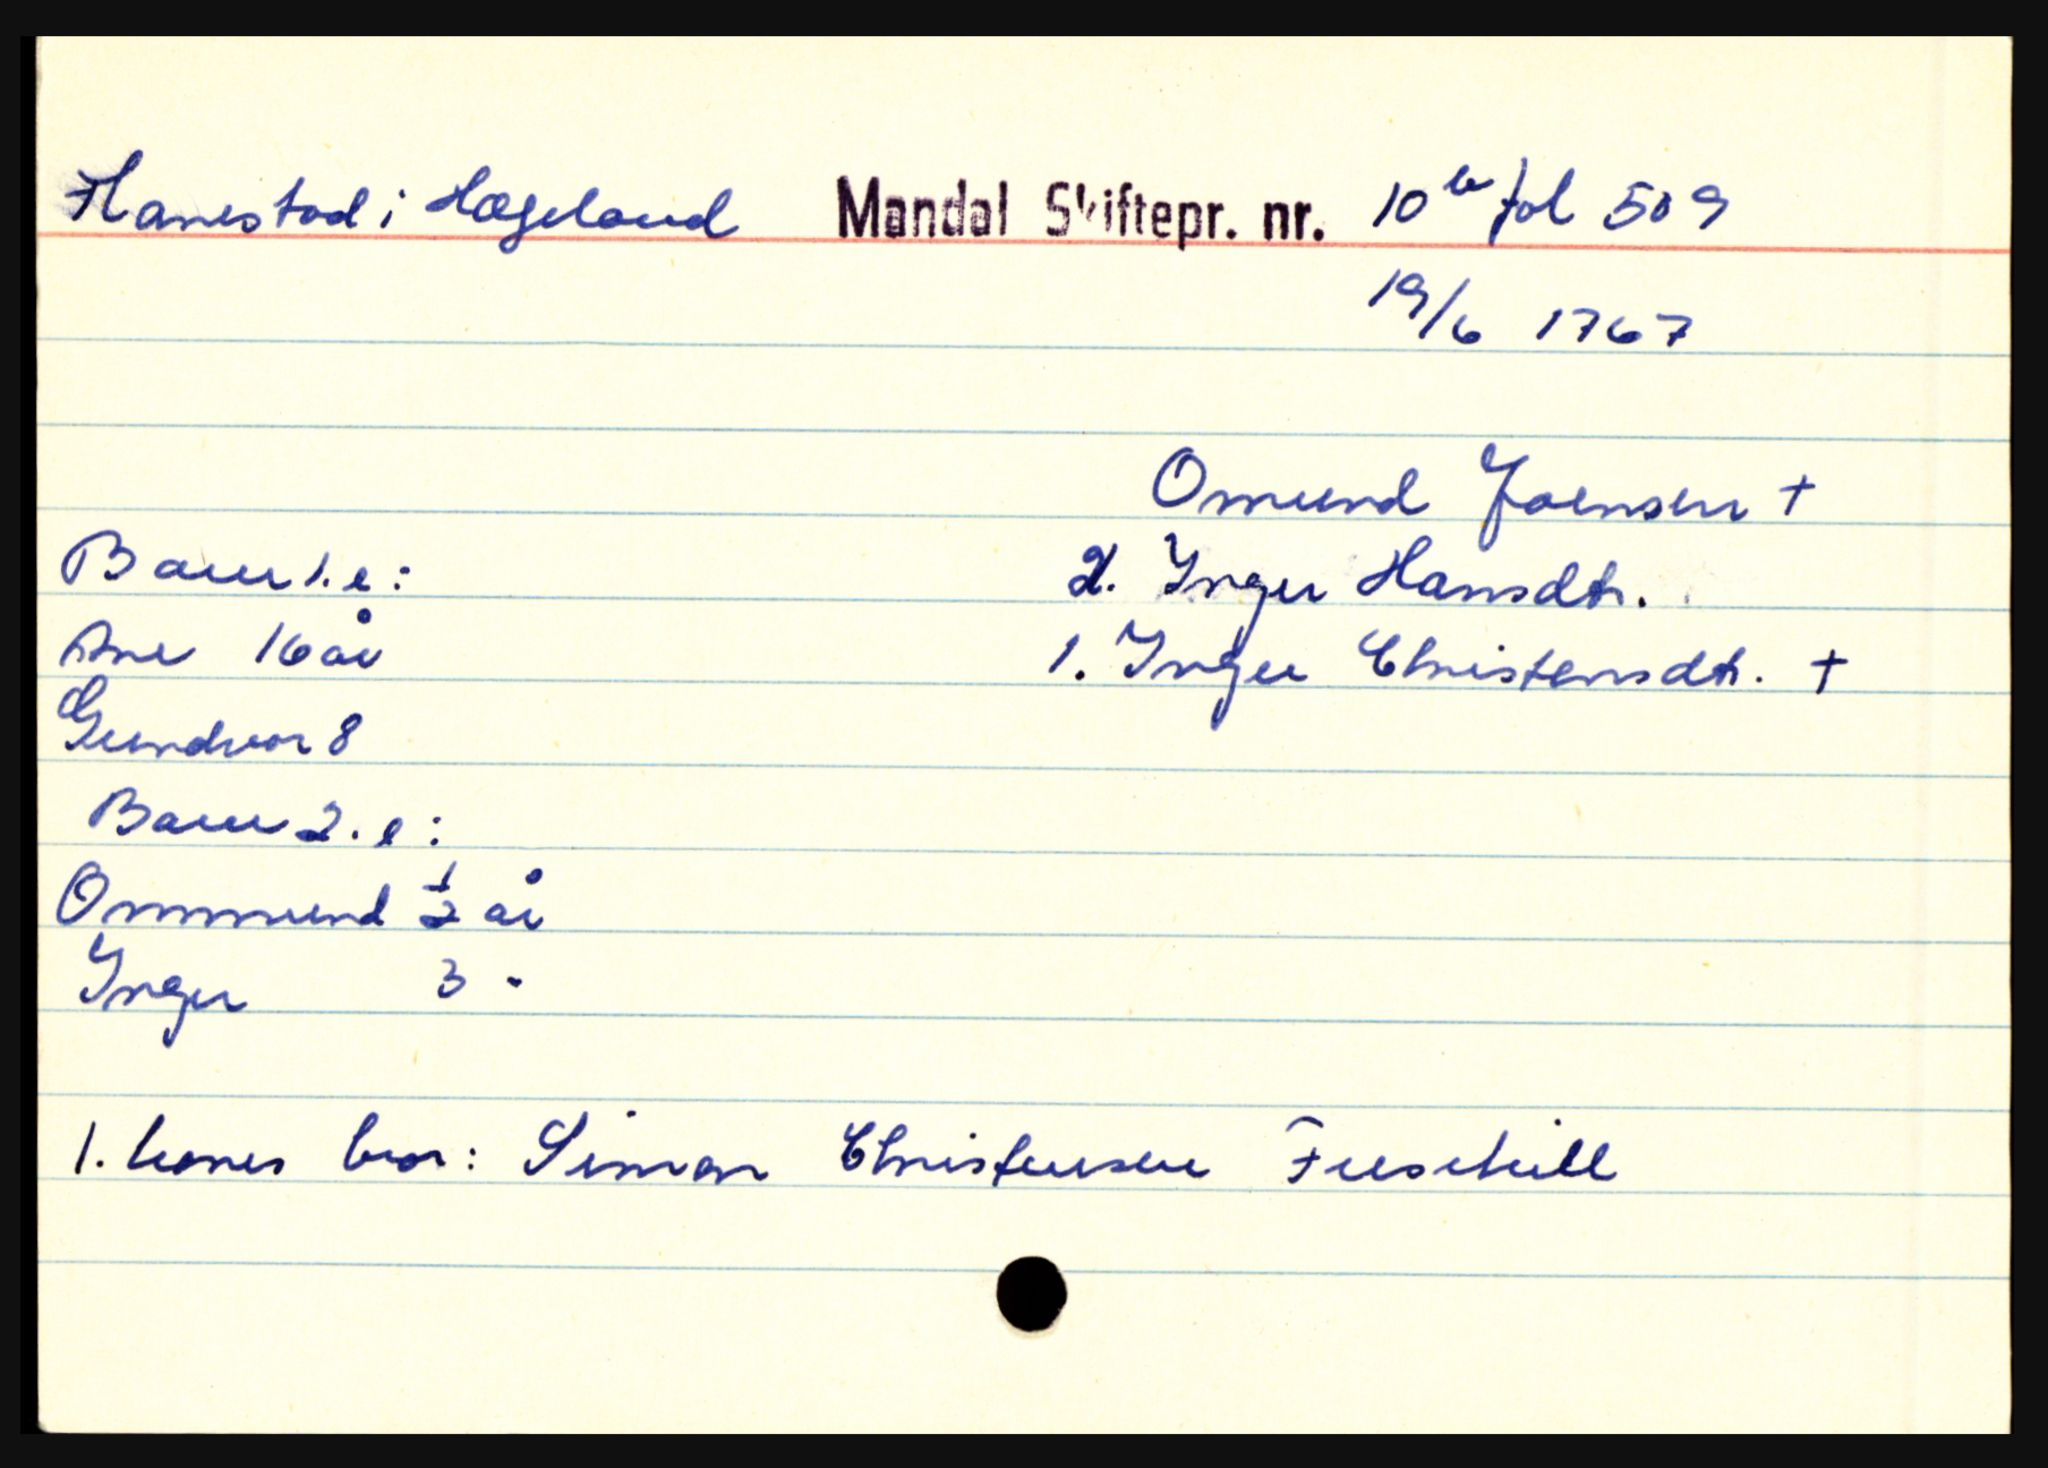 Hanestad i Hægeland Mandal Skiftepr. nr. 10 b fol 509
19/6 1767
Omund Joensen +
Barn 1. e: 2. Inger Hansdtr.
Ane 16 år 1. Inger Christensdtr. +
Gundvor 8
Barn 2. e:
Ommund 1/2 år
Inger 3 -
1. kones bror: Simon Christensen